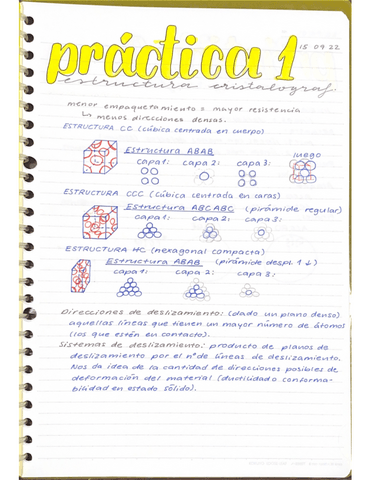 práctica 1
15 09 22
estructura cristalograf.
menor empaquetamiento = mayor resistencia
↳ menos direcciones densas.
ESTRUCTURA CC (cúbica centrada en cuerpo)
Estructura ABAB
capa 1: capa 2: capa 3: juego
ESTRUCTURA CCC (cúbica centrada en caras)
Estructura ABCABC (pirámide regular)
capa 1: capa 2: capa 3:
ESTRUCTURA HC (hexagonal compacta)
Estructura ABAB (pirámide despl. 1↓)
capa 1: capa 2: capa 3:
Direcciones de deslizamiento: (dado un plano denso)
aquellas líneas que tienen un mayor número de átomos
(los que estén en contacto).
Sistemas de deslizamiento: producto de planos de
deslizamiento por el nº de líneas de deslizamiento.
Nos da idea de la cantidad de direcciones posibles de
deformación del material (ductilidad o conforma-
bilidad en estado sólido).